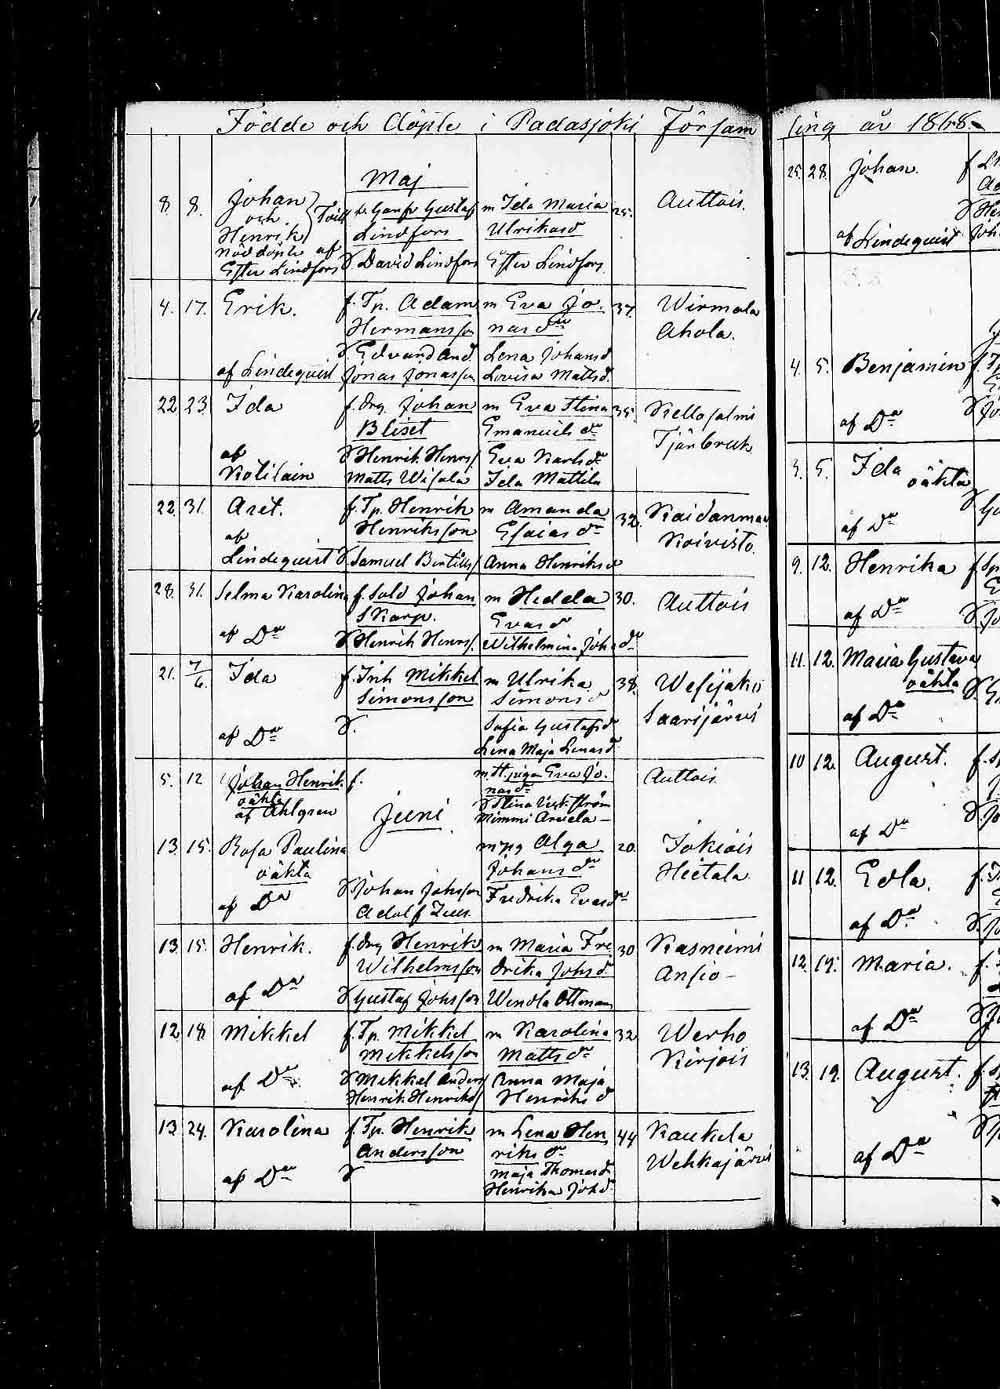 Födde och döpte i Padasjoki Församling år 1868.
Maj
8. 8. Johan och Henrik Tvill
Nöddöpte af Efter Lindfors
f. Gustaf Lindfors
D David Lindfors
m Ida Maria Ulriksd
Efter Lindfors
25. Auttois.
4. 17. Erik.
af Lindequist
f. Tp. Adam Hermansson
D Edvard And.
Jonas Jonasson
m Eva Jonasdr
Lena Johansd
Lovisa Mattsd.
37. Wirmola
Ahola.
22. 23. Ida
af Kotilain
f. drg. Johan Bliset
D Henrik Henrs
Matts Wisala
m Eva Stina Emanuelsdr
Eva Karlsdr
Ida Mattila
35. Kellosalmi
Tjärbruk
22. 31. Axet.
af Lindequist
f. Tp. Henrik Henriksson
D Samuel Bertills
m Amanda Esaiasdr
Anna Henriksd
32. Kaidanmaa
Koivisto.
28. 31. Selma Karolina
af Do
f. Sold Johan Skarp.
D Henrik Henrs.
m Hedda Evasd
Wilhelmina Johsdr
30. Auttois
21. 7/6. Ida
af Do
f. Inh Mikkel Simonsson
D.
m Ulrika Simonsd
Sofia Gustafsd
Lena Maja Lenasd.
38. Wesijako
Saarijärvi
5. 12 Johan Henrik
oäkta
af Ahlgren
f.
m. H. piga Eva Jonasdr
D Stina Vestström
Mimmi Arvela
Auttois
Juni
13. 15. Rosa Paulina
oäkta
af Do
D Johan Johsson
Adolf
m pg Alga Johansdr
Fredrika Evasdr
20. Jokiois
Hietala
13. 15. Henrik.
af Do
f. drg Henrik Wilhelmsson
D Gustaf Johsson
m Maria Fredrika Johsd.
Wendla Ottman
30 Kasneimi
Ansio
12. 18. Mikkel
af Do
f. Tp. Mikkel Mikkelsson
D Mikkel Anders
Henrik Henriks
m Karolina Mattsdr
Anna Maja Henriksd
32. Werho
Kirjois
13. 24. Karolina
af Do
f Tp. Henrik Andersson
D
m Lena Henriksdr
Maja Thomasd.
Henrika Johd
44 Kaukela
Wehkajärvi
25. 28. Johan.
af Lindequist
4. 5. Benjamin
af Do
3. 5. Ida oäkta
af Do
9. 12. Henrika
af Do
11. 12. Maria Gustava
oäkta
af Do
10 12. August.
af Do
11. 12. Edla.
af Do
12. 19. Maria.
af Do
13. 19. August.
af Do